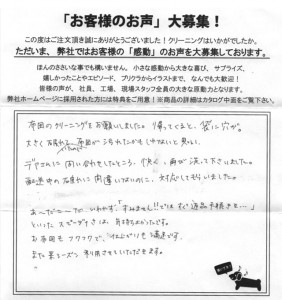 「お客様のお声」大募集！
この度はご注文頂き誠にありがとうございました！クリーニングはいかがでしたか。
ただいま、弊社ではお客様の「感動」のお声を大募集しております。
ほんのささいな事でも構いません、小さな感動から大きな喜び、サプライズ、
嬉しかったことやエピソード、プリクラからイラストまで、なんでも大歓迎！
皆様の声が、社員、工場、現場スタッフ全員の大きな原動力となります。
弊社ホームページに採用された方には特典をご用意！※商品の詳細はカタログ中面をご覧下さい。
布団のクリーニングをお願いしました。帰ってくると、袋に穴が。
大きく破れ
布団が汚れたかもしれないと思い、
問い合わせしたところ、快く、再び洗って下さいました。
配送中の破れに間違いないのに、対応してもらいました。
あーだこーだいわず、「すみません!!ではすぐ返品手続きを…」
といったスピーディさは、気持ちよかったです。
お布団もフワフワで、仕上がりも満足です。
また来シーズン利用させていただきます。